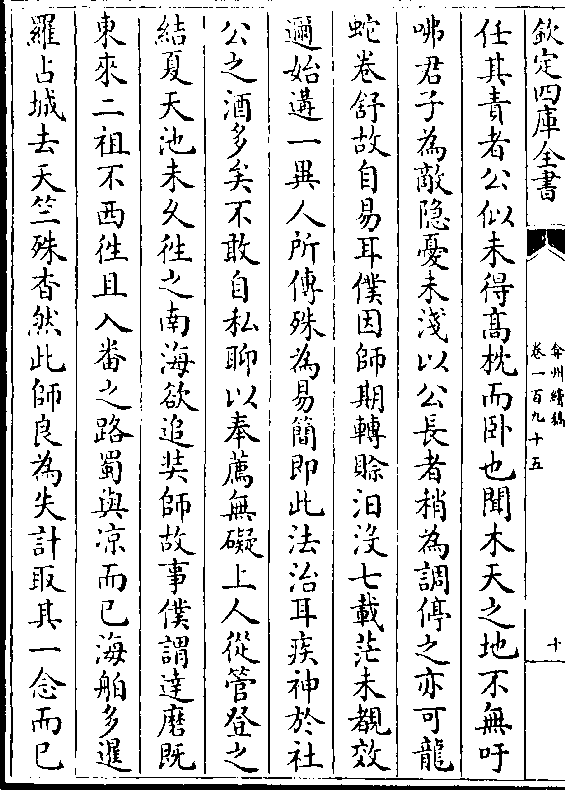 欽定四庫全書
弇州續稿
卷一百九十五
十
任其責者公似未得髙枕而卧也聞木天之地不無吁
咈君子為敵隐憂未淺以公長者稍為調停之亦可龍
蛇卷舒故自易耳僕因師期轉賒汩沒七載茫未覩效
邇始遘一異人所傳殊為易簡即此法治耳疾神於社
公之酒多矣不敢自私聊以奉薦無礙上人從管登之
結夏天池未久徃之南海欲追奘師故事僕謂達磨既
東來二祖不西徃且入番之路蜀與凉而已海舶多暹
羅占城去天竺殊杳然此師良為失計取其一念而已